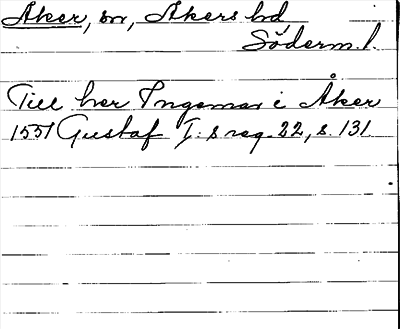 Åker, sn, Åkers hd
Söderm. l.
Till her Ingemar i Åker
1551 Gustaf I:s reg. 22, s. 131